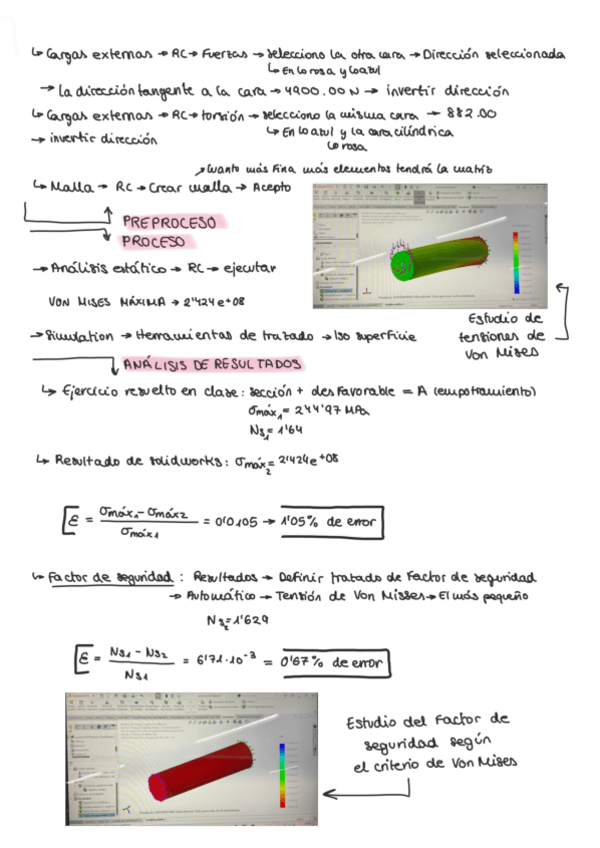 ↳ Cargas externas → RC → Fuerzas → selecciono la otra cara → Dirección seleccionada
↳ En lo rosa y lo azul
→ La dirección tangente a la cara → 4900.00 N → invertir dirección
↳ Cargas externas → RC → torsión → selecciono la misma cara → 882.00
↳ En lo azul y la cara cilíndrica
↳ rosa
→ invertir dirección
↗ Cuanto más fina más elementos tendrá la matriz
↳ Malla → RC → Crear malla → Acepto
PREPROCESO
PROCESO
→ Análisis estático → RC → ejecutar
VON MISES MÁXIMA → 2'424e+08
Estudio de
tensiones de
Von Mises
→ Simulation → Herramientas de trazado → Iso superficie
ANÁLISIS DE RESULTADOS
↳ Ejercicio resuelto en clase: sección + desfavorable = A (empotramiento)
σmáx1 = 244'97 MPa
Ns1 = 1'64
↳ Resultado de solidworks: σmáx2 = 2'424e+08
Ɛ = σmáx1 - σmáx2 / σmáx1 = 0'0105 → 1'05% de error
↳ Factor de seguridad: Resultados → Definir tratado de Factor de seguridad
→ Automático → Tensión de Von Misses → El más pequeño
Ns2 = 1'629
Ɛ = Ns1 - Ns2 / Ns1 = 6'71·10⁻³ = 0'67% de error
Estudio del Factor de
seguridad según
el criterio de Von Mises